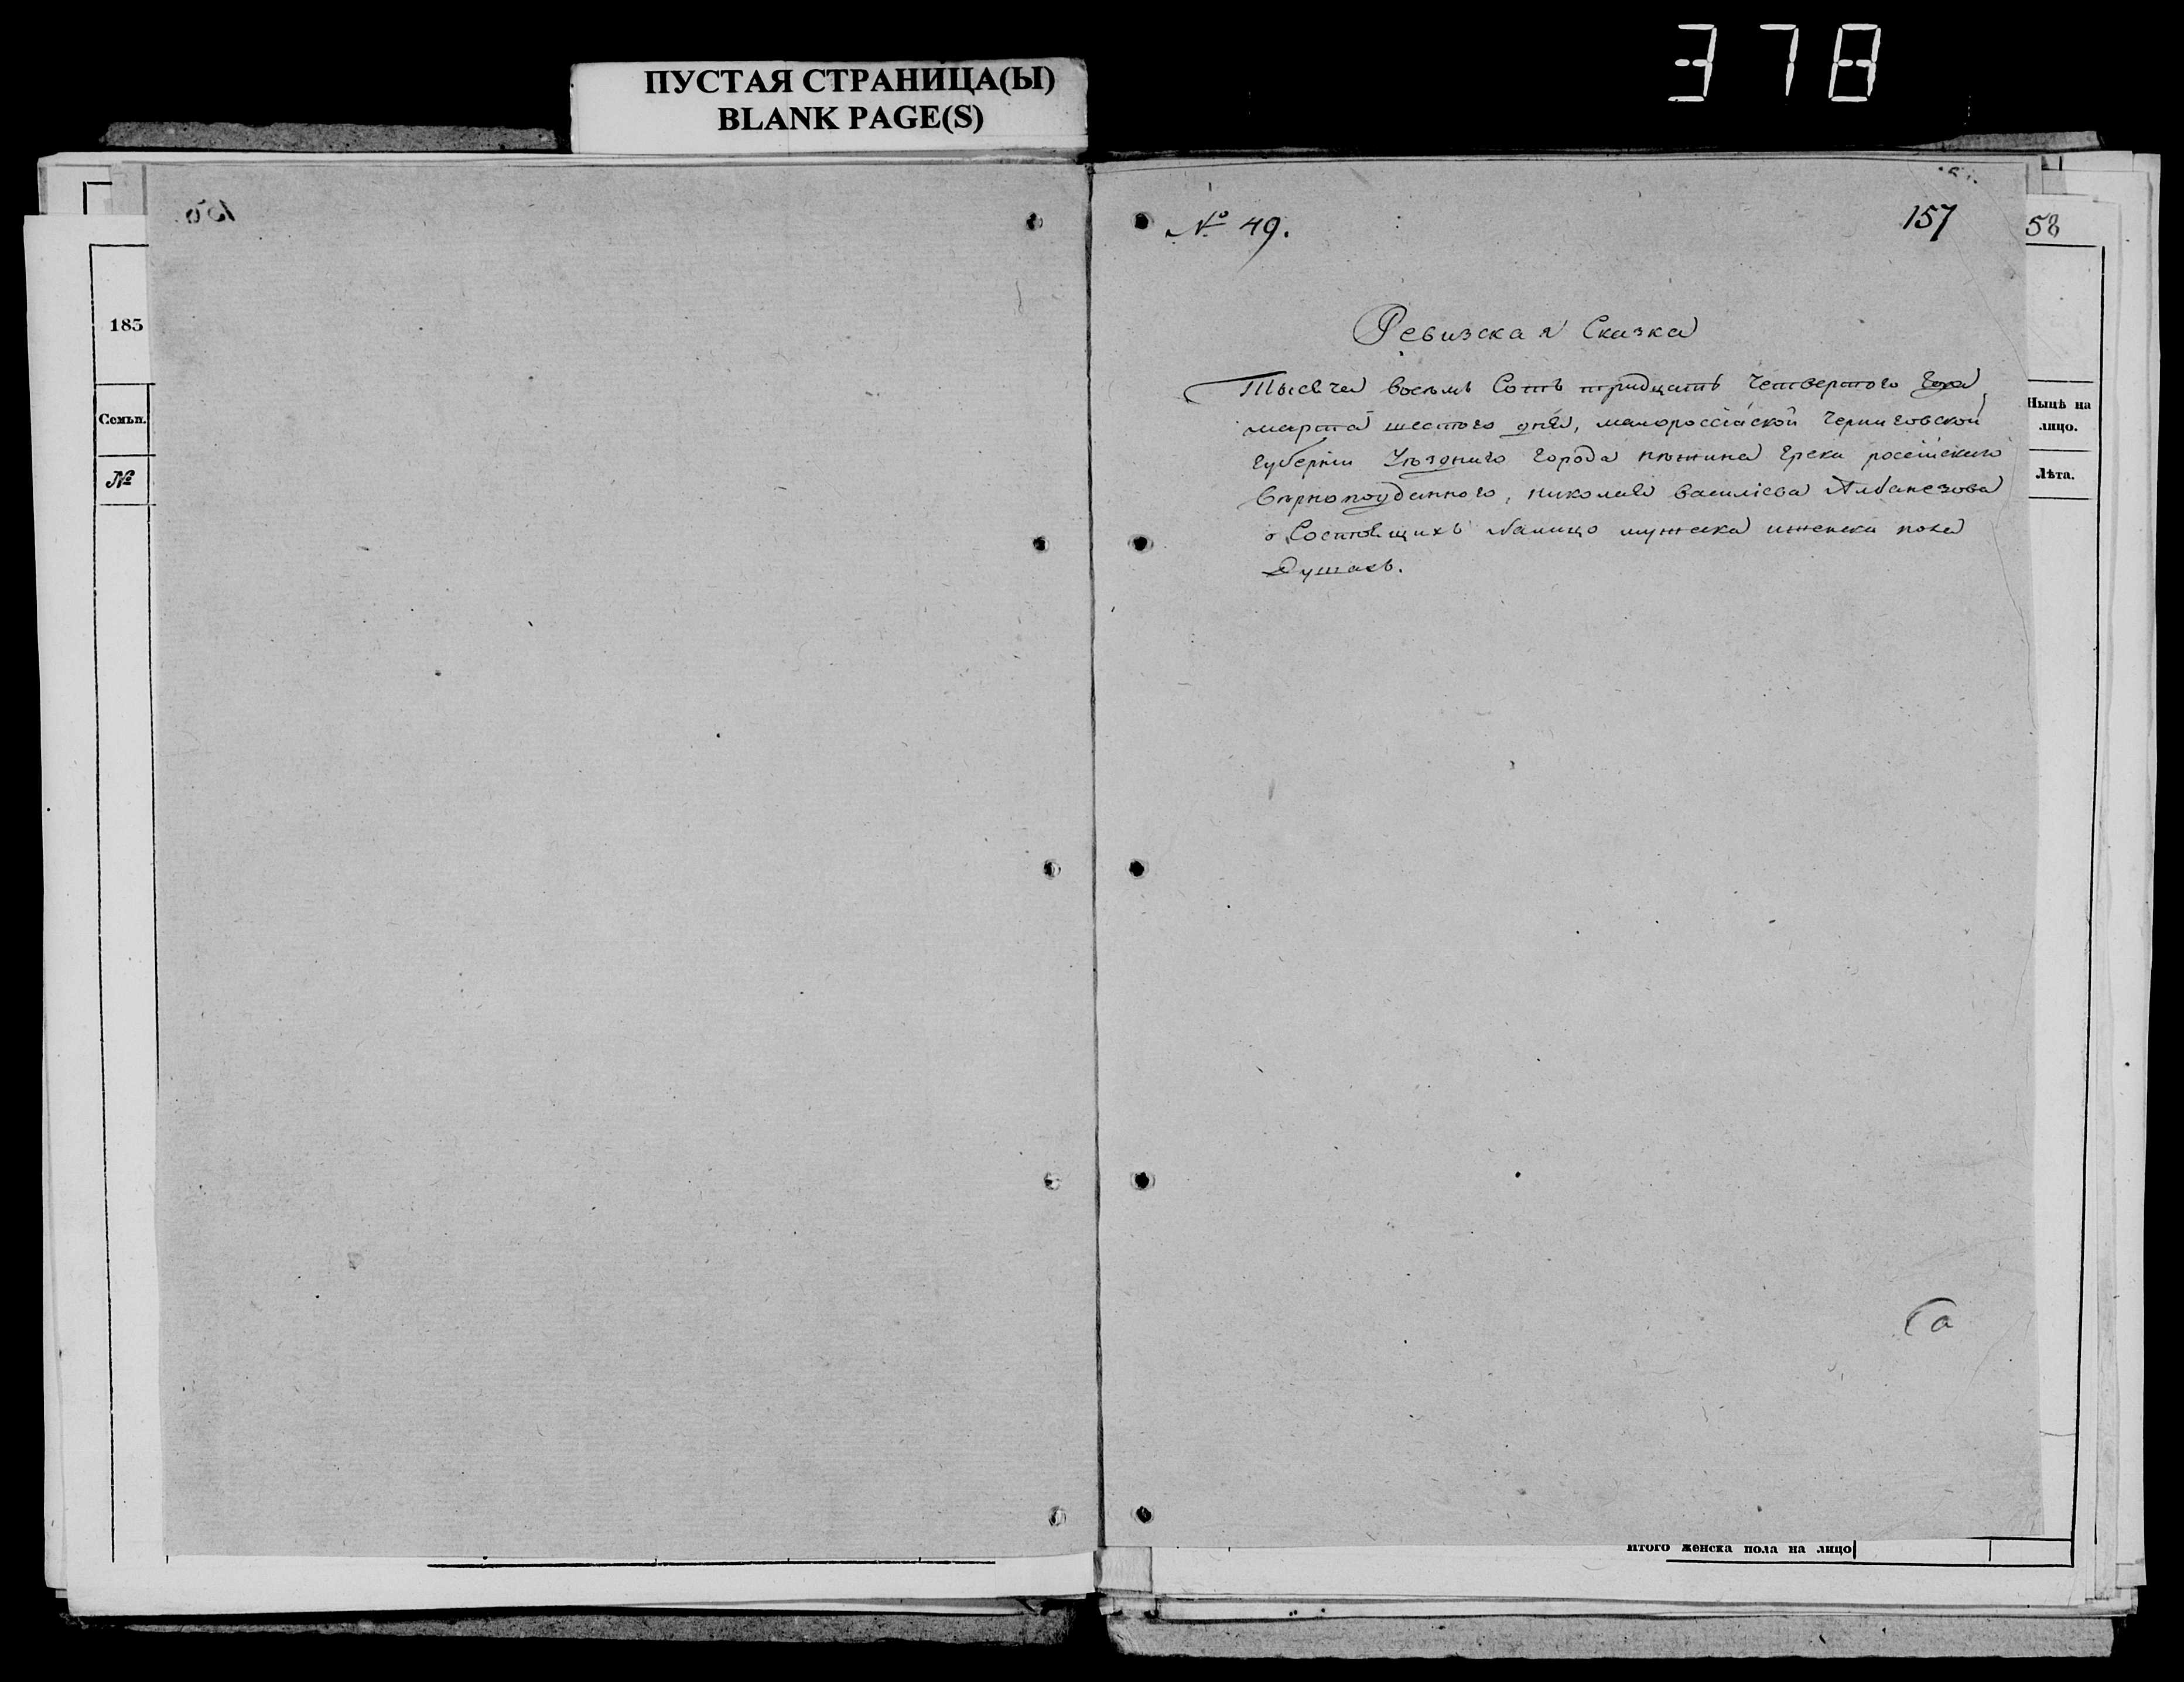 378
ПУСТАЯ СТРАНИЦА(Ы)
BLANK PAGE(S)
183
Семьи.
№
№ 49.
157
58
Ревизская Сказка
Тысяча восемь Сотъ тридцать Четвертого Года
марта шестого дня, малороссійской Черниговской
Губерніи Уѣзднаго Города нѣжина Грека росейскаго
вѣрноподданного, николая василіева Албанезова
о Состоящихъ налицо мужеска иженска пола
Душахъ.
Нынѣ на
лицо.
Лѣта.
Итого женска пола на лицо